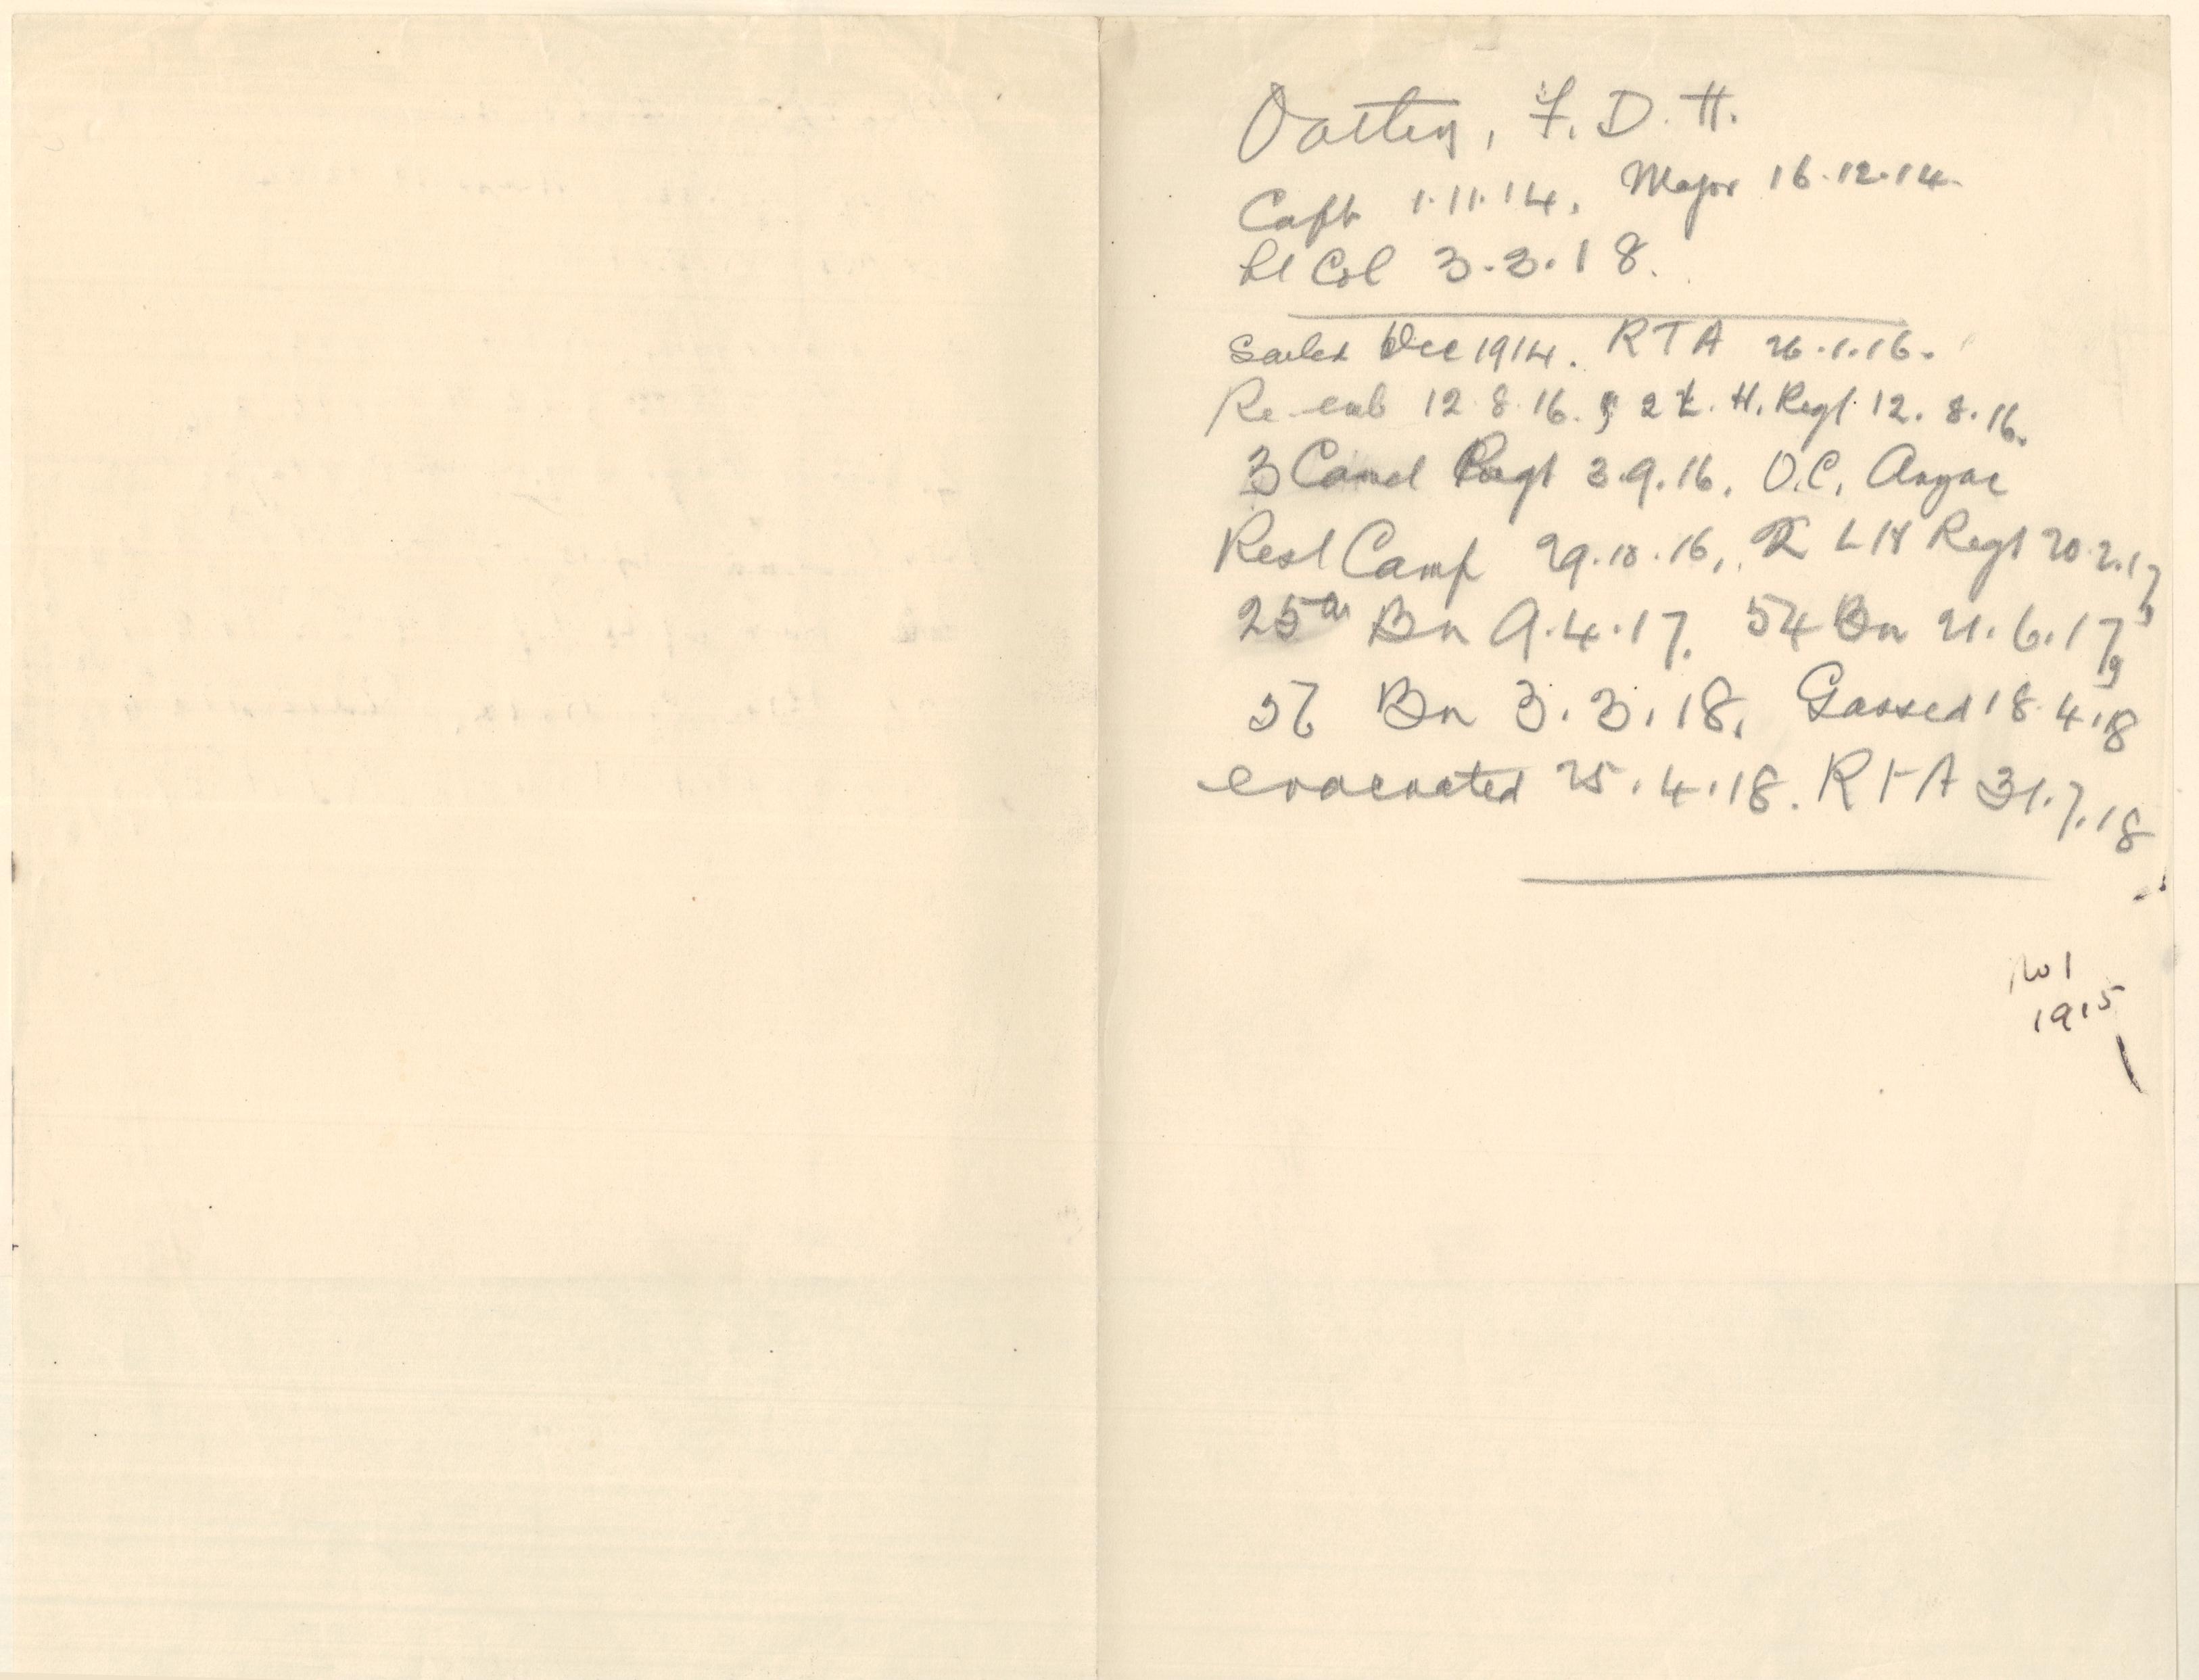 Oatten, F. D. H.
Capt 1.11.14, Major 16.12.14.
Lt Col 3.3.18.
Sailed Dec 1914. RTA 26.1.16.
Re-emb 12.8.16. 2 L. H. Regt. 12. 8. 16.
3 Camel Regt 3.9.16, O.C. Anzac
Rest Camp 29.10.16, 2 LH Regt 20.2.17,
25th Bn 9.4.17. 54 Bn 21.6.17,
57 Bn 3.3.18. Gassed 18.4.18
evacuated 25.4.18. RTA 31.7.18
No 1
1915